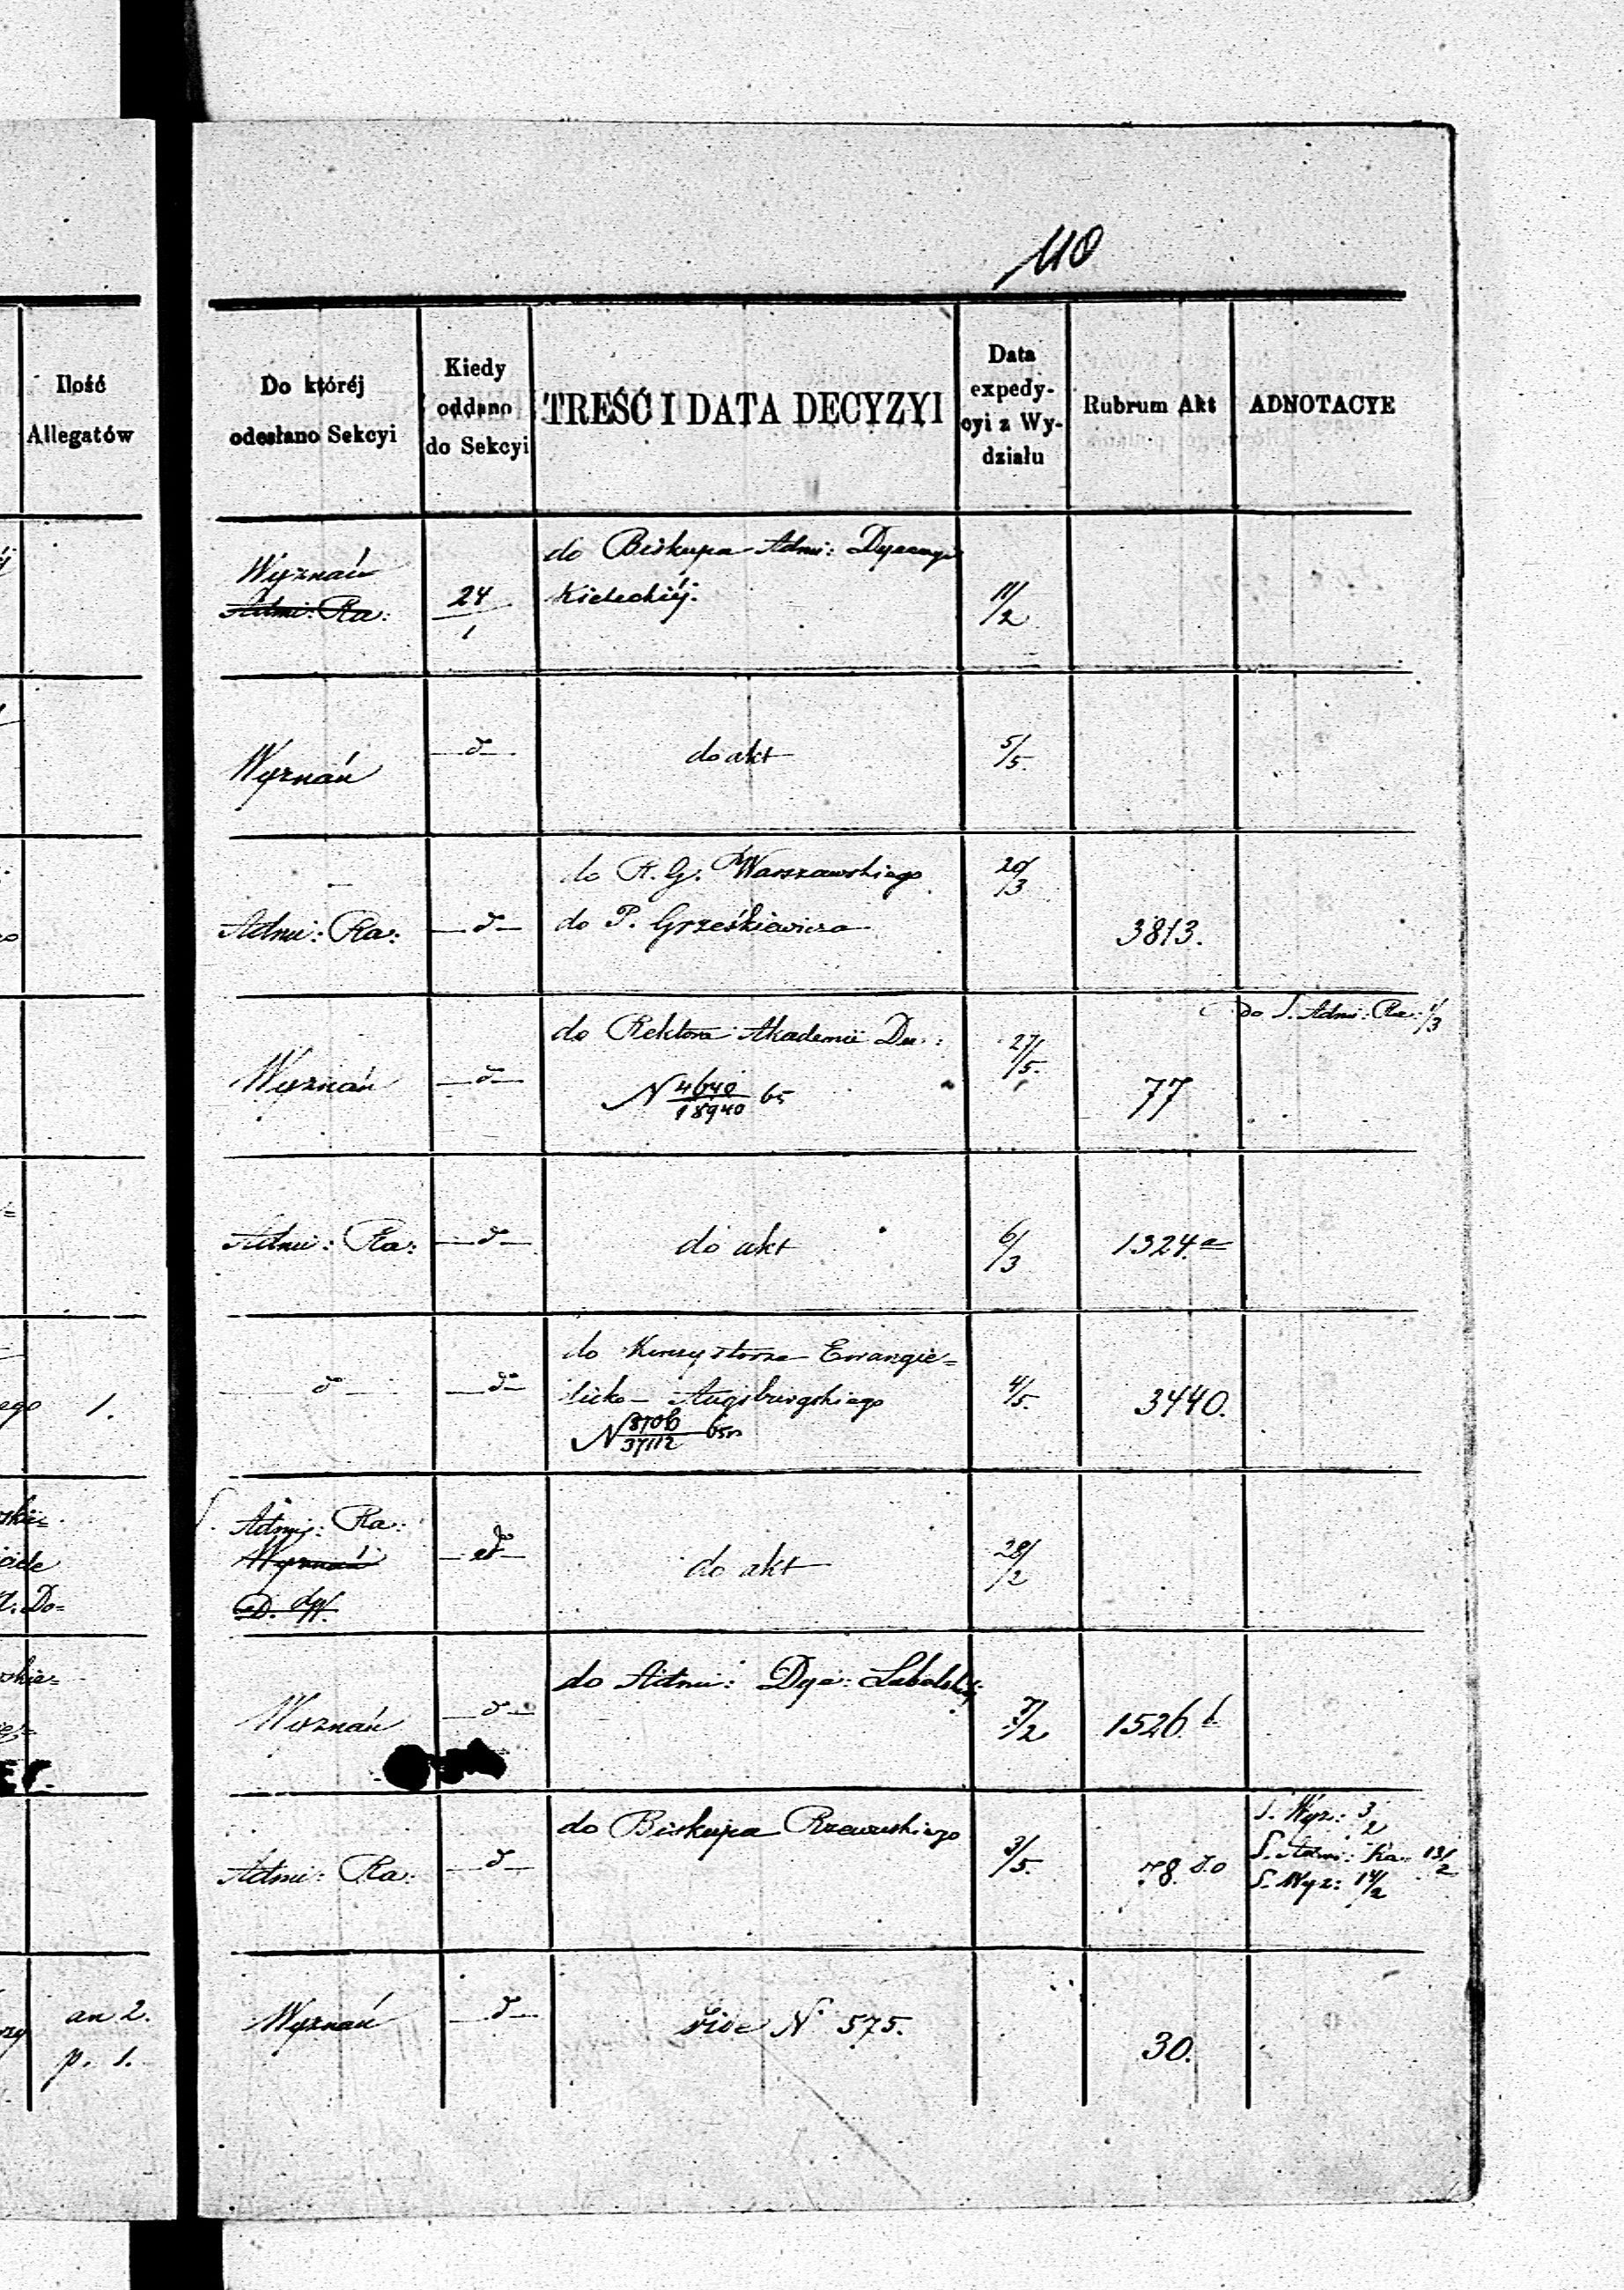 110
Ilość
Allegatów
Do któréj
odesłano Sekcyi
Kiedy
oddano
do Sekcyi
TREŚĆ I DATA DECYZYI
Data
expedy-
cyi z Wy-
działu
Rubrum Akt
ADNOTACYE
Wyznań
Admi: Ra:
24/1
do Biskupa Admi: Dyecezyi
Kieleckiéj.
11/2
Wyznań
d
do akt
5/5.
Admi: Ra:
d
do R. G. Warszawskiego
do P. Grześkiewicza
20/3
3813.
Wyznań
d
do Rektora Akademii Du:
N 4640/18940 65
27/5.
77
do S. Admi: Ra: 1/3
Admi: Ra:
d
do akt
6/3
1324.a
1.
d
d
do Konsystorza Ewangie=
licko - Augsburgskiego
N 8706/37112 65r
4/5.
3440.
Admi: Ra:
Wyznań
d
do akt
28/2
Wyznań
d
do Admi: Dye: Lubelskiéj
7/2
1526.b
Admi: Ra:
d
do Biskupa Rzewuskiego
3/5.
78. d.o
S. Wyz: 3/2
S. Admi: Ra: 13/2
S. Wyz: 14/2
an 2.
p. 1.
Wyznań
d
vide N 575.
30.